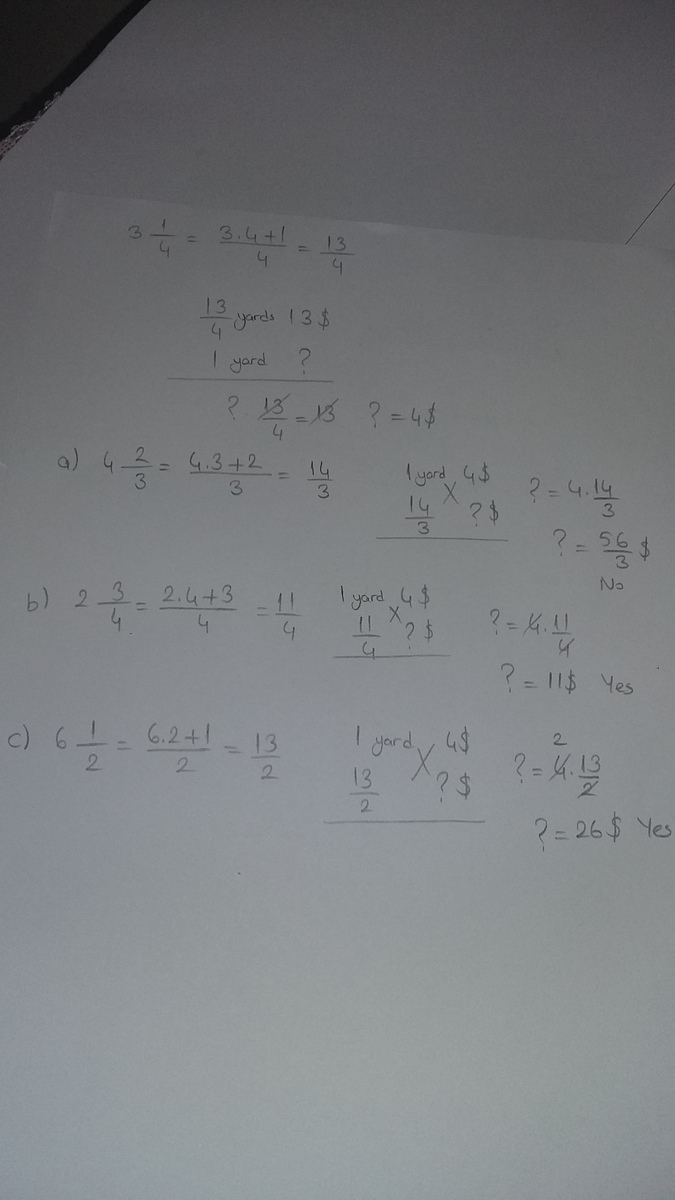 3 1/4 = 3.4+1/4 = 13/4
13/4 yards 13$
1 yard ?
? . 13/4 = 13 ? = 4$
a) 4 2/3 = 4.3+2/3 = 14/3 1 yard 4$ ? = 4.14/3
14/3 X ?$
? = 56/3 $
No
b) 2 3/4 = 2.4+3/4 = 11/4 1 yard 4$ ? = 4.11/4
11/4 X ?$
? = 11$ Yes
c) 6 1/2 = 6.2+1/2 = 13/2 1 yard 4$ 2 ? = 4.13/2
13/2 X ?$
? = 26$ Yes